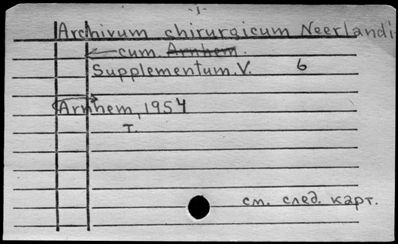 -1-
Archivum chirurgicum Neerlandi-
cum. Arnhem.
Supplementum. V. 6
Arnhem, 1954
т.
см. след. карт.